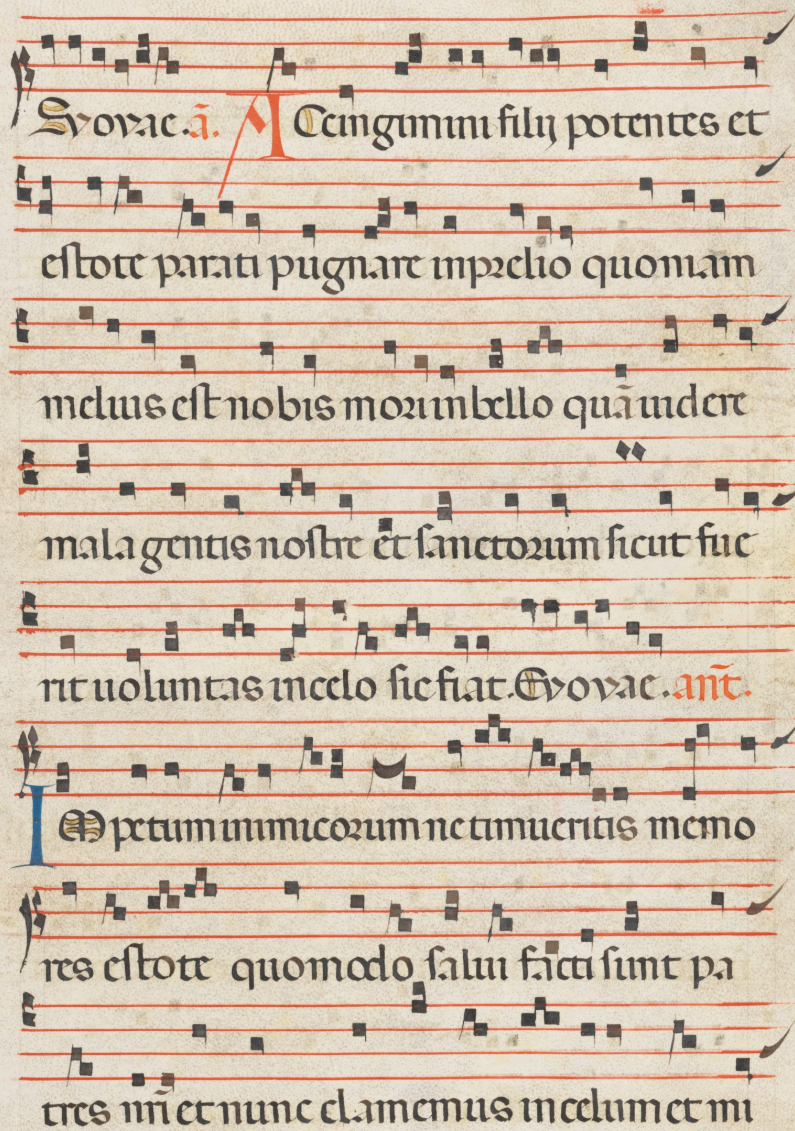 Evovae. a̅. ACcingimini filij potentes et
estote parati pugnare inprelio quoniam
melius est nobis mori inbello qua̅ uidere
mala gentis nostre et sanctorum sicut fue
rit uoluntas incelo sic fiat. Evovae. an̅t.
IMpetum inimicorum ne timueritis memo
res estote quomodo salui facti sunt pa
tres nr̅i et nunc clamemus incelum et mi